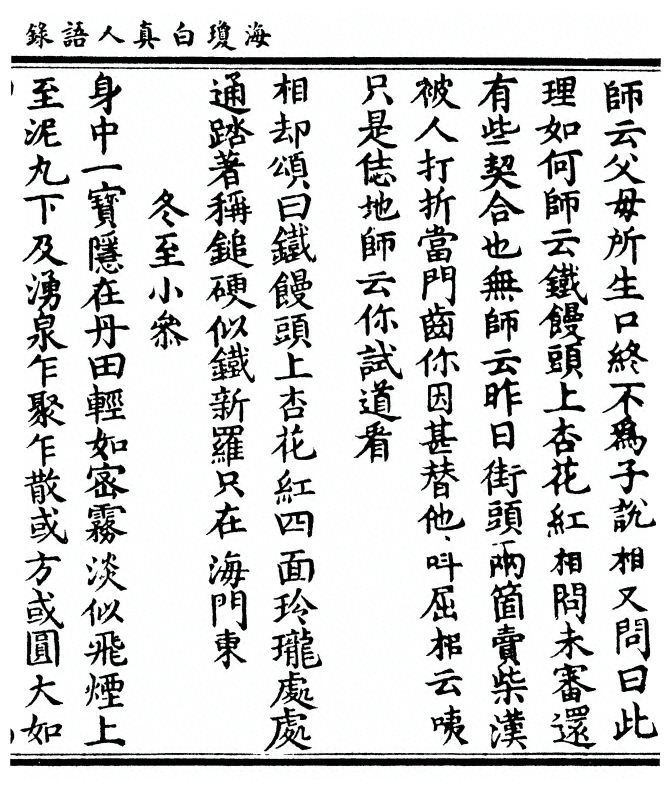 海瓊白真人語錄
師云父母所生口終不爲子說相又問曰此
理如何師云鐵饅頭上杏花紅相問未審還
有些契合也無師云昨日街頭兩箇賣柴漢
被人打折當門齒你因甚替他叫屈相云咦
只是恁地師云你試道看
相却頌曰鐵饅頭上杏花紅四面玲瓏處處
通踏著稱鎚硬似鐵新羅只在海門東
冬至小參
身中一寶隱在丹田輕如密霧淡似飛煙上
至泥丸下及湧泉乍聚乍散或方或圓大如